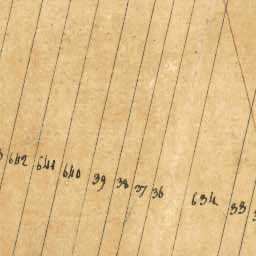 642 641 640 39 38 37 36 634 33